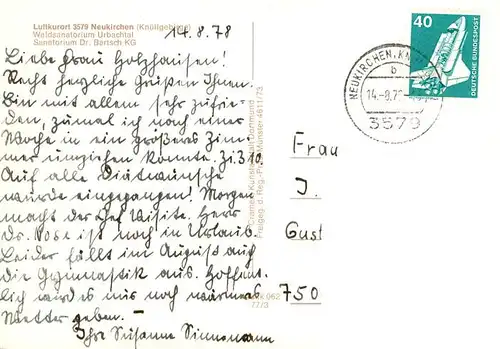 14.8.78
Luftkurort 3579 Neukirchen (Knüllgebirge)
Waldsanatorium Urbachtal
Sanatorium Dr. Bartsch KG
Liebe Frau Holzhausen!
Recht herzliche Grüßen Ihnen.
Bin mit allem sehr zufrie-
den, zumal ich noch einer
Woche in ein größeres Zim-
mer umziehen konnte. Zi. 310.
Auf alle Diätwünsche
wurde eingegangen! Morgen
macht der Chef Visite. Herr
Dr. Vose ist noch in Urlaub.
Leider fällt im August auch
die Gymnastik aus. Hoffent-
lich wird es nur noch warmes
Wetter geben. –
Ihre Susanne Sinnemann
Cramers Kunstanstalt Dortmund
Freigeg. d. Reg.-Präs. Münster 4511/73
062
77/3
40
DEUTSCHE BUNDESPOST
NEUKIRCHEN, KN
b
14.-8.78
3579
Frau
J.
Gust
750